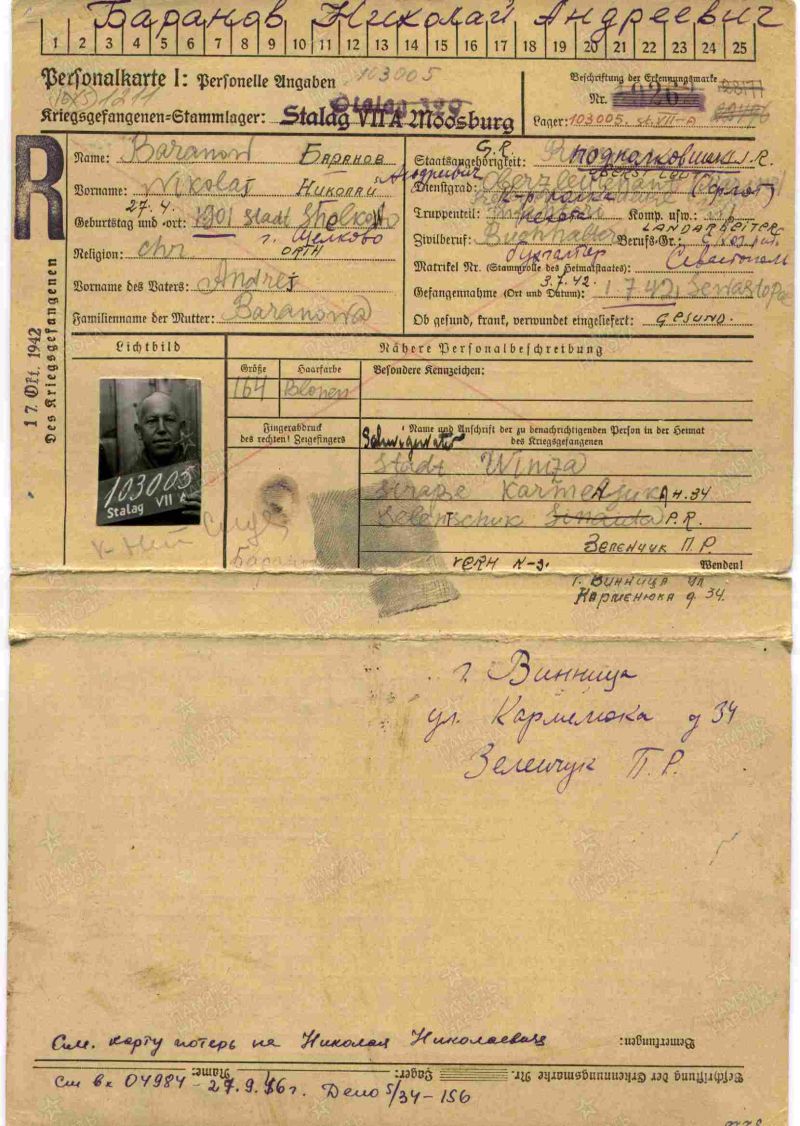 Баранов Николай Андреевич
1 2 3 4 5 6 7 8 9 10 11 12 13 14 15 16 17 18 19 20 21 22 23 24 25
Personalkarte I: Personelle Angaben 103005
Beschriftung der Erkennungsmarke
1211
Nr.
Kriegsgefangenen-Stammlager: Stalag VII A Moosburg
Lager: 103005. st. VII-A
R
Des Kriegsgefangenen
17. Okt. 1942
Name: Baranow Баранов
Vorname: Nikolai Николай Андреевич
27. 4.
Geburtstag und -ort: 1901 Stadt
г. Щелково
Religion: chr ORTH
Vorname des Vaters: Andrej
Familienname der Mutter: Baranowa
G.R.
Staatsangehörigkeit: подполковник
Dienstgrad:
Truppenteil: Пехота Komp. usw.:
LANDARBEITER
Zivilberuf: Buchhalter Berufs-Gr.:
бухгалтер
Matrikel Nr. (Stammrolle des Heimatstaates): Севастополь
3.7.42.
Gefangennahme (Ort und Datum): 1.7.42. Sewastopol
Ob gesund, krank, verwundet eingeliefert: GESUND.
Lichtbild
Nähere Personalbeschreibung
Größe Haarfarbe Besondere Kennzeichen:
164
103005
Stalag VII A
Fingerabdruck
des rechten! Zeigefingers
Name und Anschrift der zu benachrichtigenden Person in der Heimat
des Kriegsgefangenen
Stadt Winiza
Straße Karmeljuka H.34
Selentschuk P.R.
Зеленчук П.Р
Wenden!
г. Винница ул
Карменюка д 34.
г. Винница
ул. Кармелюка д 34
Зеленчук П.Р.
См. карту потерь на Николая Николаевича
Bemerkungen:
Beschriftung der Erkennungsmarke Nr. Lager: Name:
См вх 04984 - 27.9.46г. Дело 5/34-156